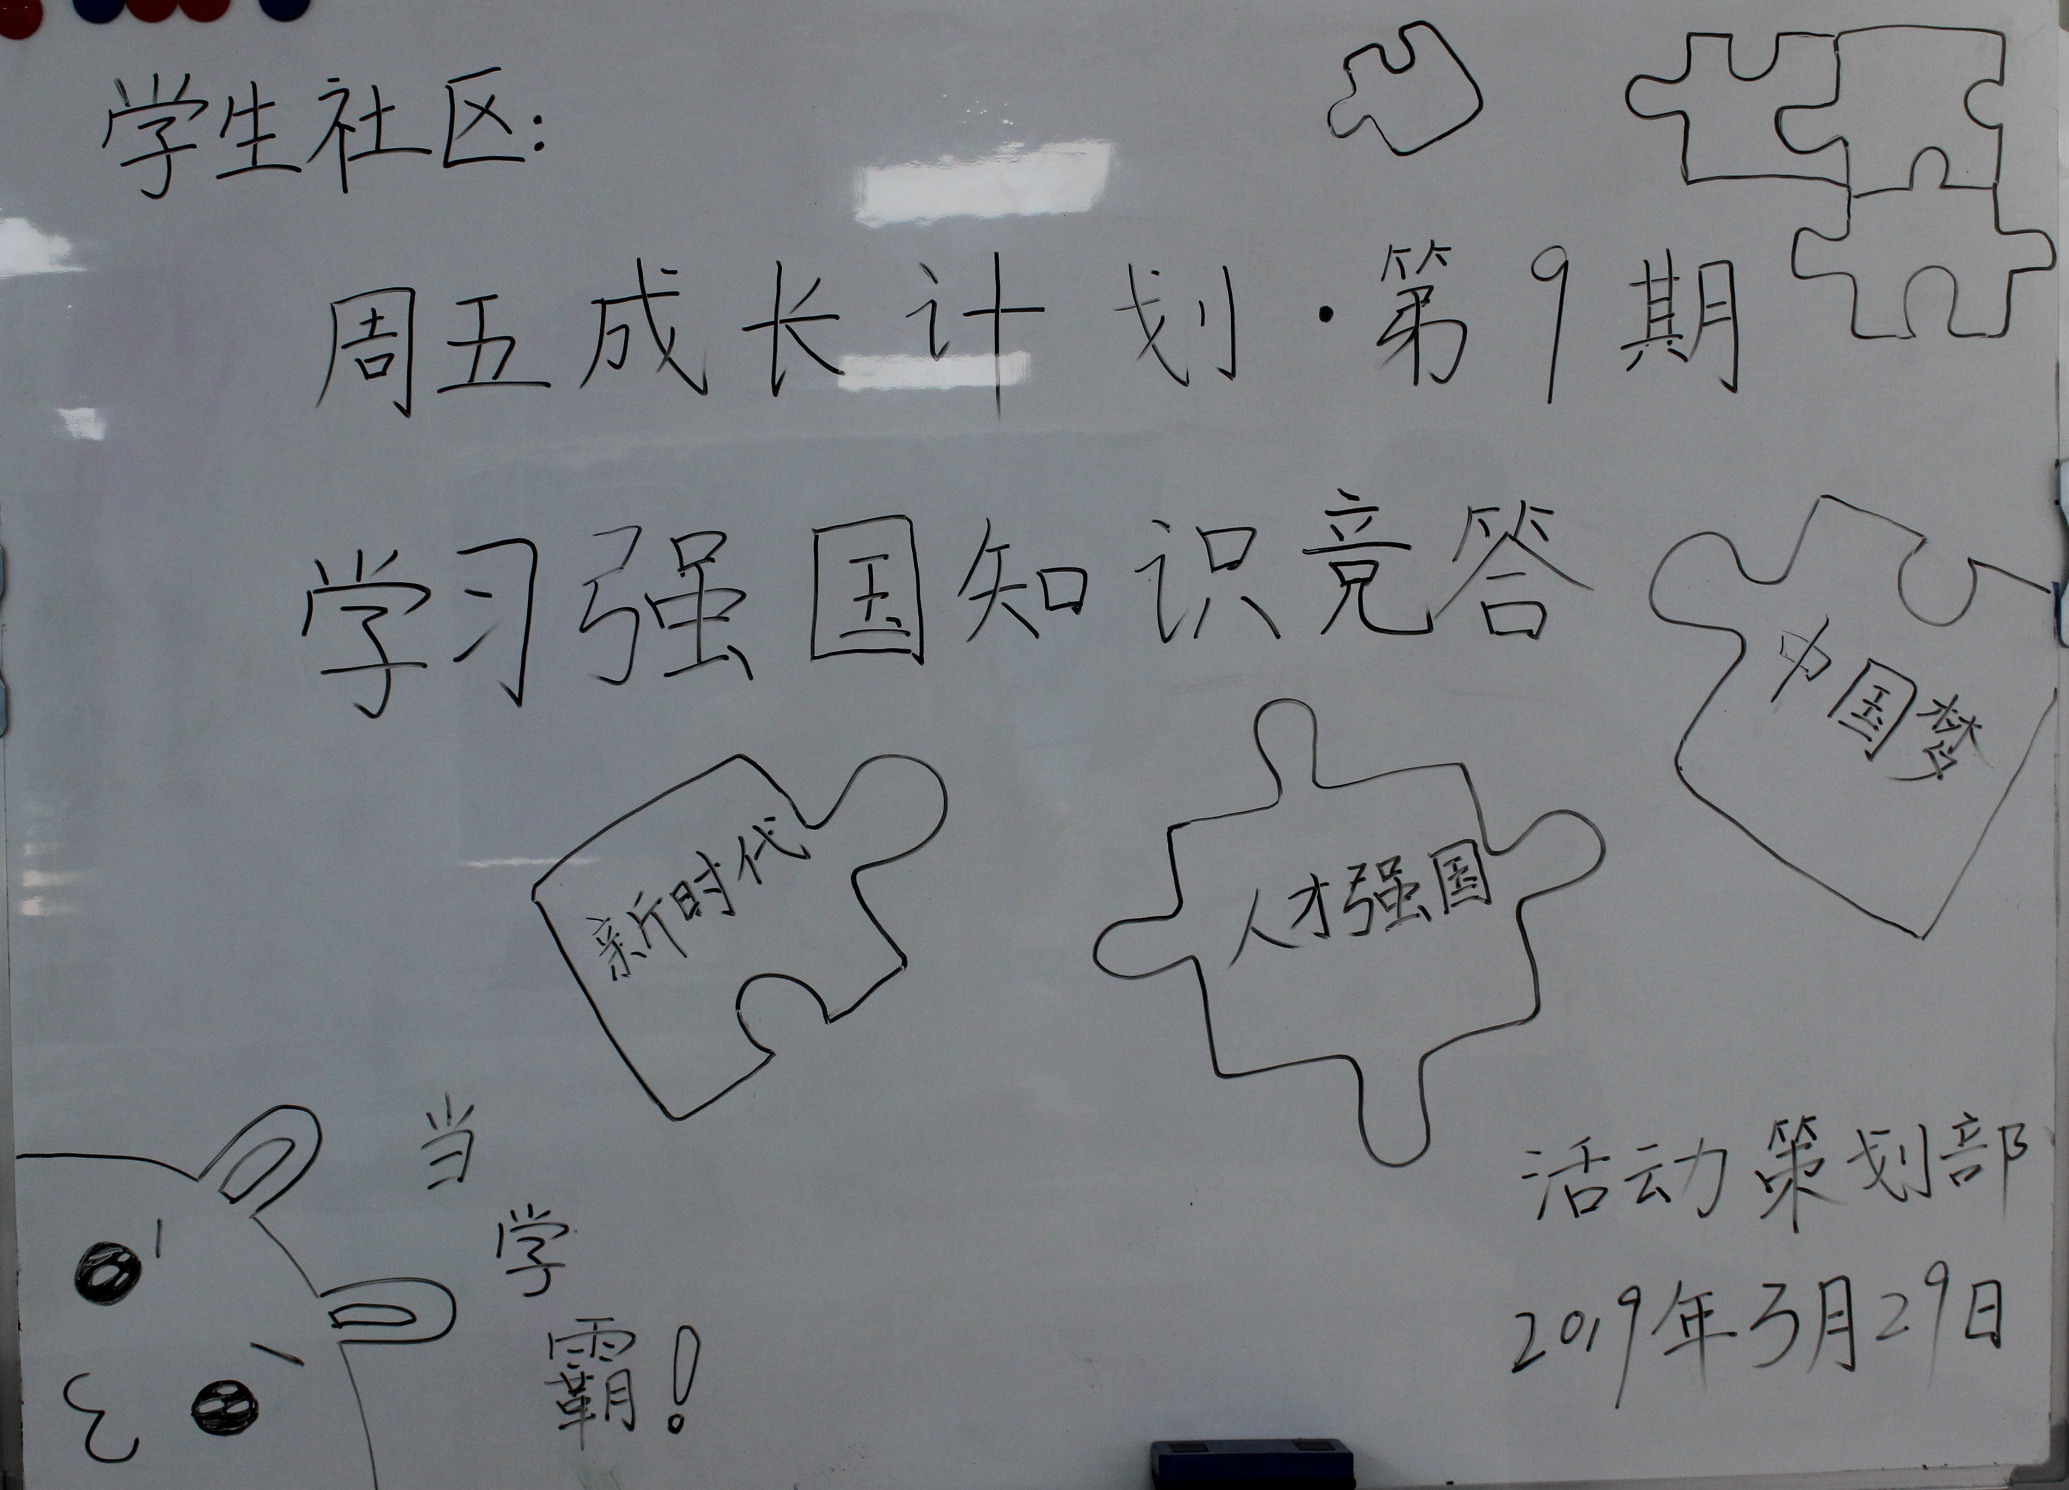 学生社区:
周五成长计划·第9期
学习强国知识竞答
中国梦
新时代
人才强国
当
学
霸!
活动策划部
2019年3月29日